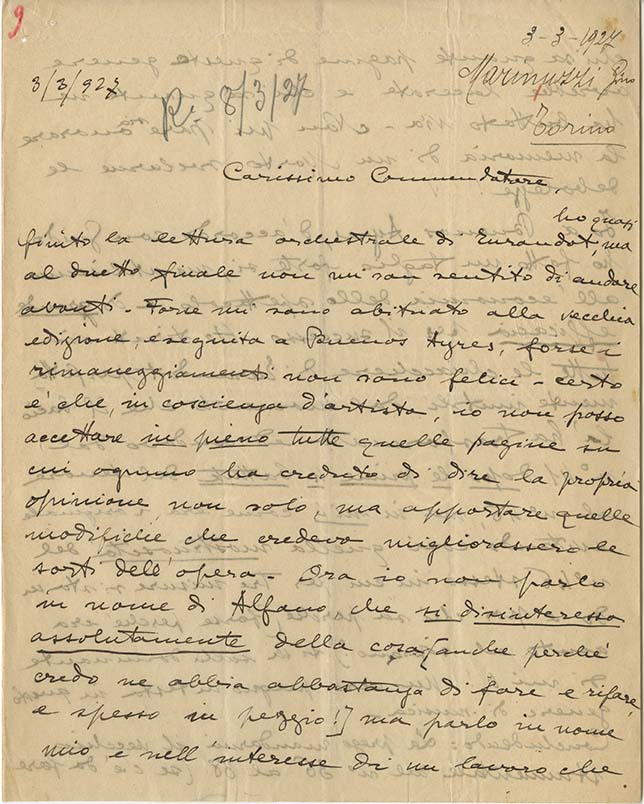 9
3-3-1927
3/3/927
R. 8/3/27
Marinuzzi Gino
Torino
Carissimo Commendatore,
ho quasi
finito la lettura orchestrale di Turandot, ma
al duetto finale non mi son sentito di andare
avanti - Forse mi sono abituato alla vecchia
edizione, eseguita a Buenos Ayres, forse i
rimaneggiamenti non sono felici - certo
è che, in coscienza d'artista, io non posso
accettare in pieno tutte quelle pagine su
cui ognuno ha creduto di dire la propria
opinione non solo, ma apportare quelle
modifiche che credeva migliorassero le
sorti dell'opera - Ora io non parlo
in nome di Alfano che si disinteressa
assolutamente della cosa [anche perché
credo ne abbia abbastanza di fare e rifare,
e spesso in peggio!] ma parlo in nome
mio e nell'interesse di un lavoro che